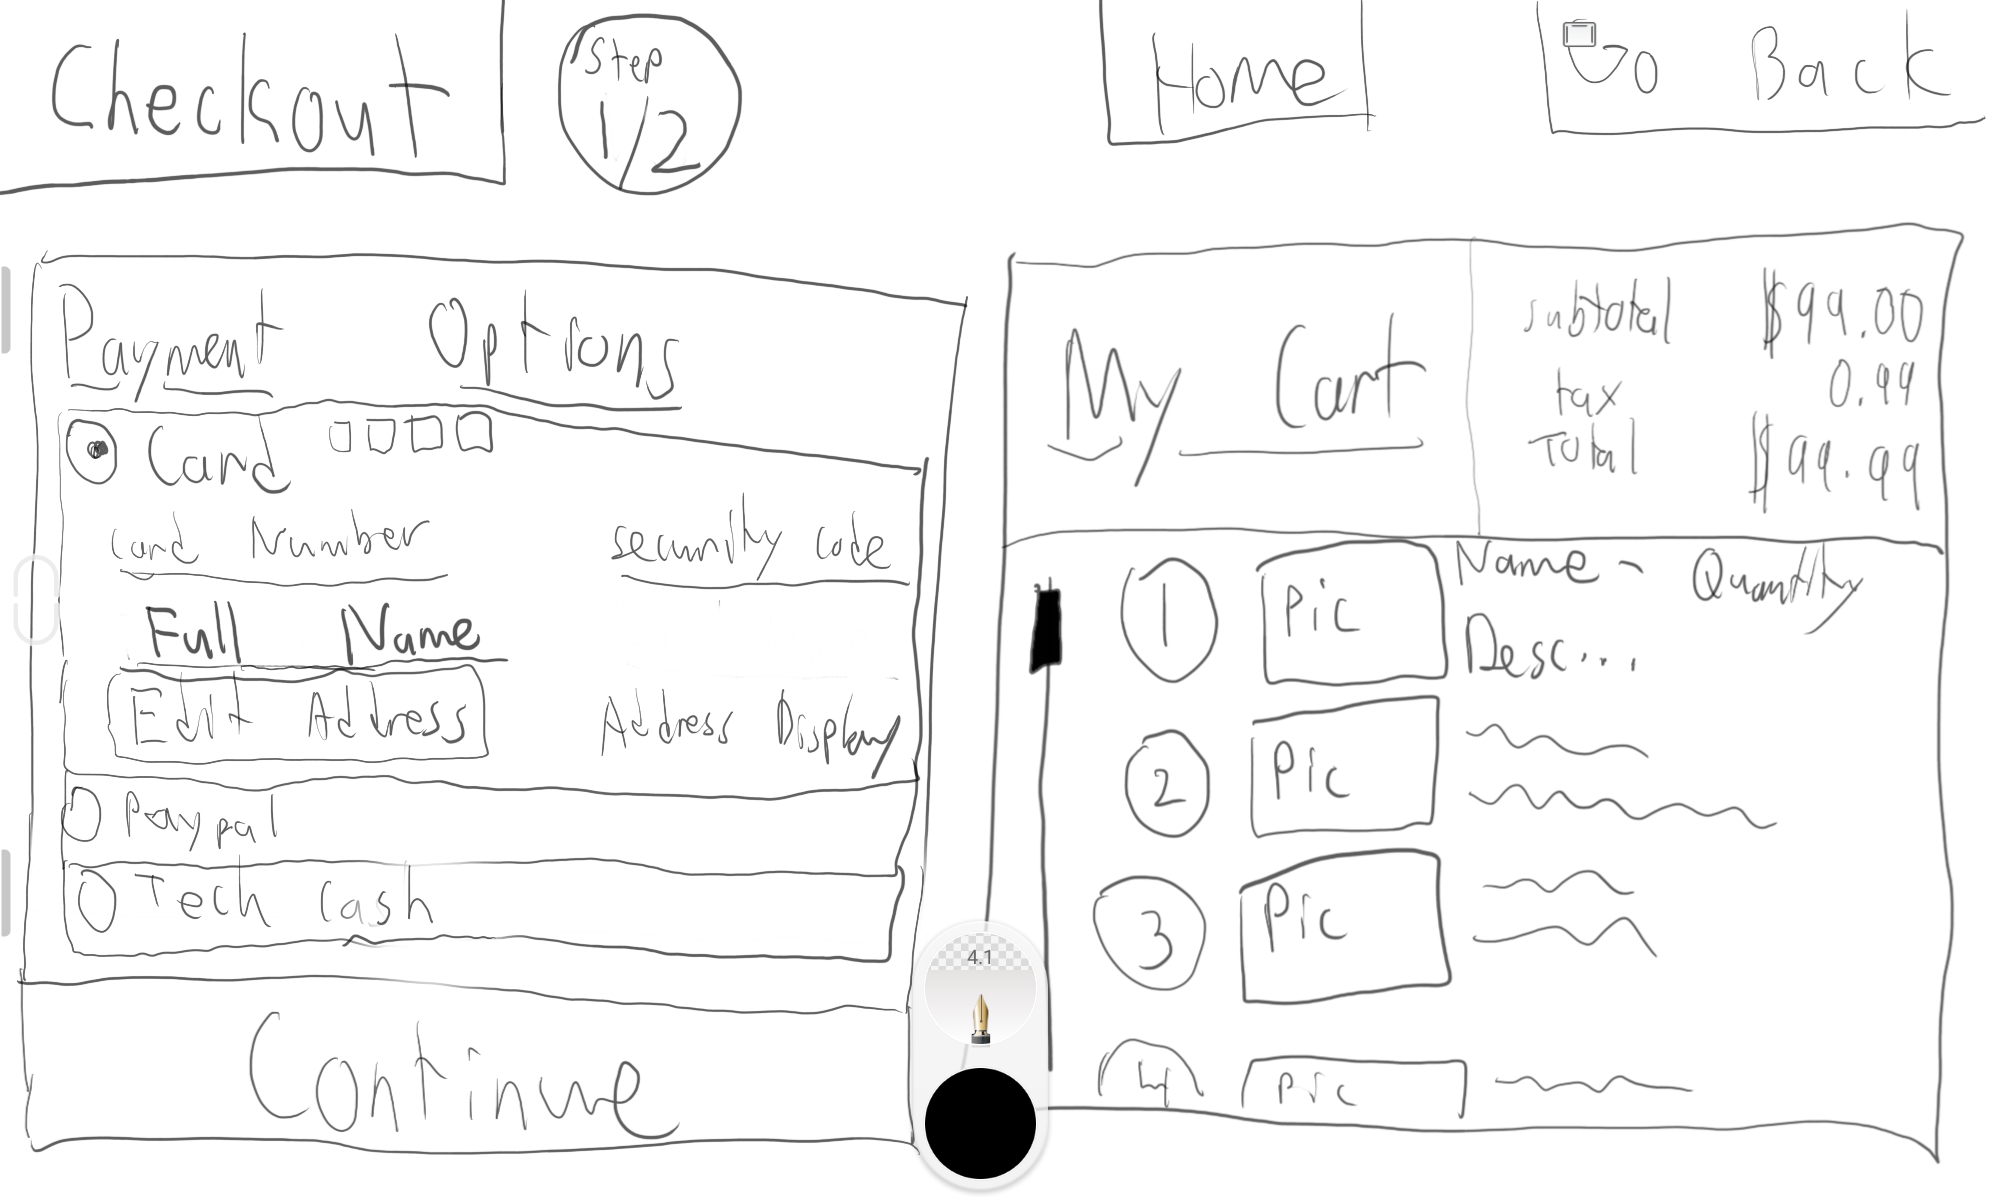 Checkout
Step
1/2
Home
Go Back
Payment Options
Card
card Number
security code
Full Name
Edit Address
Address Display
Paypal
Tech Cash
Continue
My Cart
subtotal $99.00
tax 0.99
Total $99.99
1 Pic Name - Quantity
Desc...
2 Pic
3 Pic
4 Pic
4.1